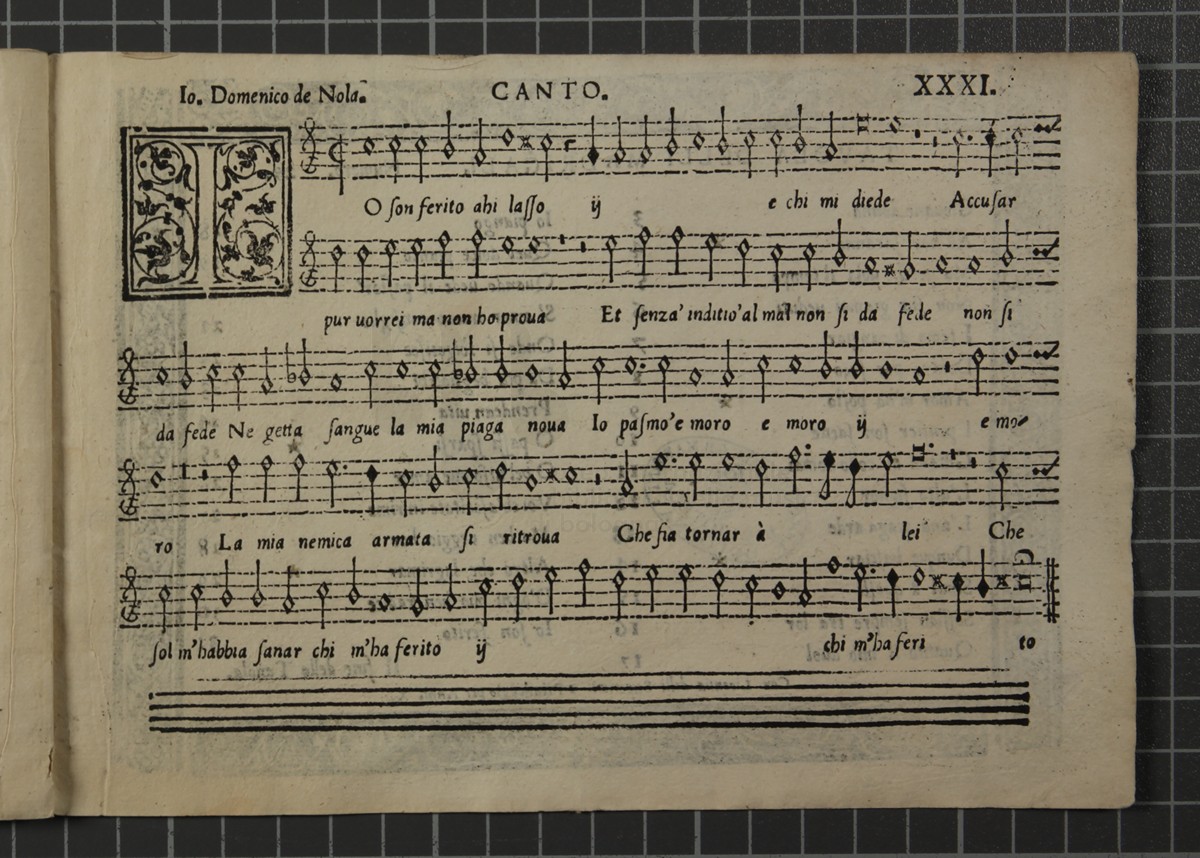 Io. Domenico de Nola. CANTO. XXXI.
I O ſon ferito ahi laſſo ij e chi mi diede Accuſar
pur uorrei ma non ho proua Et ſenza' inditio' al mal non ſi da fede non ſi
da fede Ne getta ſangue la mia piaga noua Io paſmo'e moro e moro ij e mo-
ro La mia nemica armata ſi ritroua Che ſia tornar à lei Che
ſol m'habbia ſanar chi m'ha ferito ij chi m'ha feri to